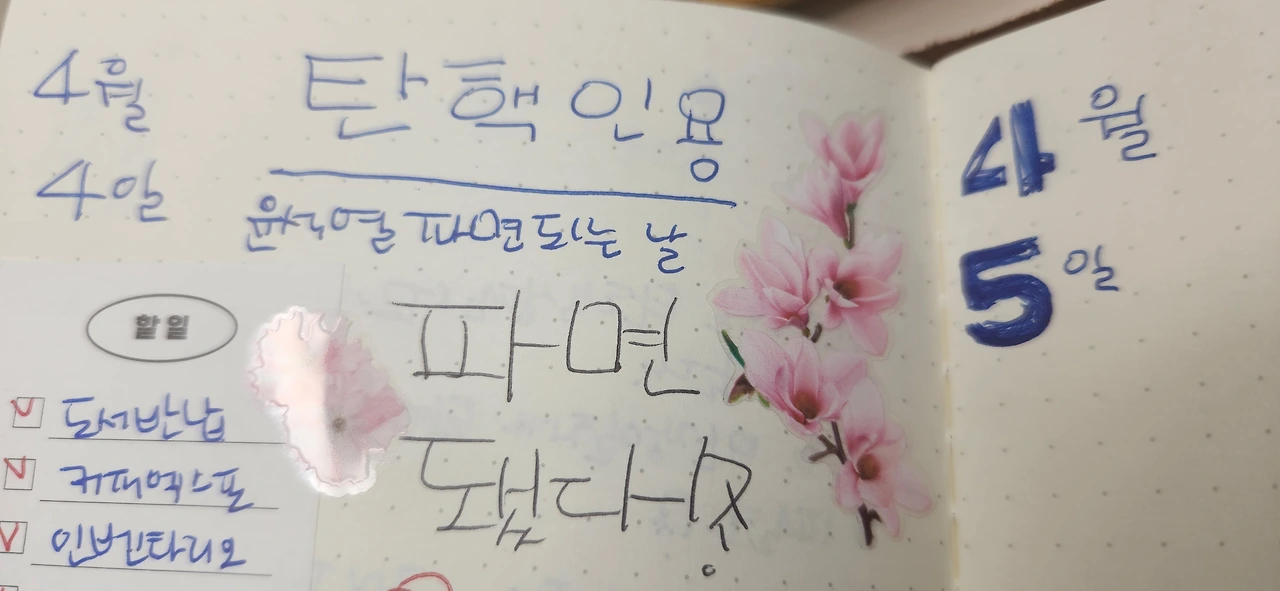 4월
4일
탄핵인용
윤석열 파면되는 날
할일
도서반납
커패엑스포
인벤타리오
파면
됐다
4월
5일